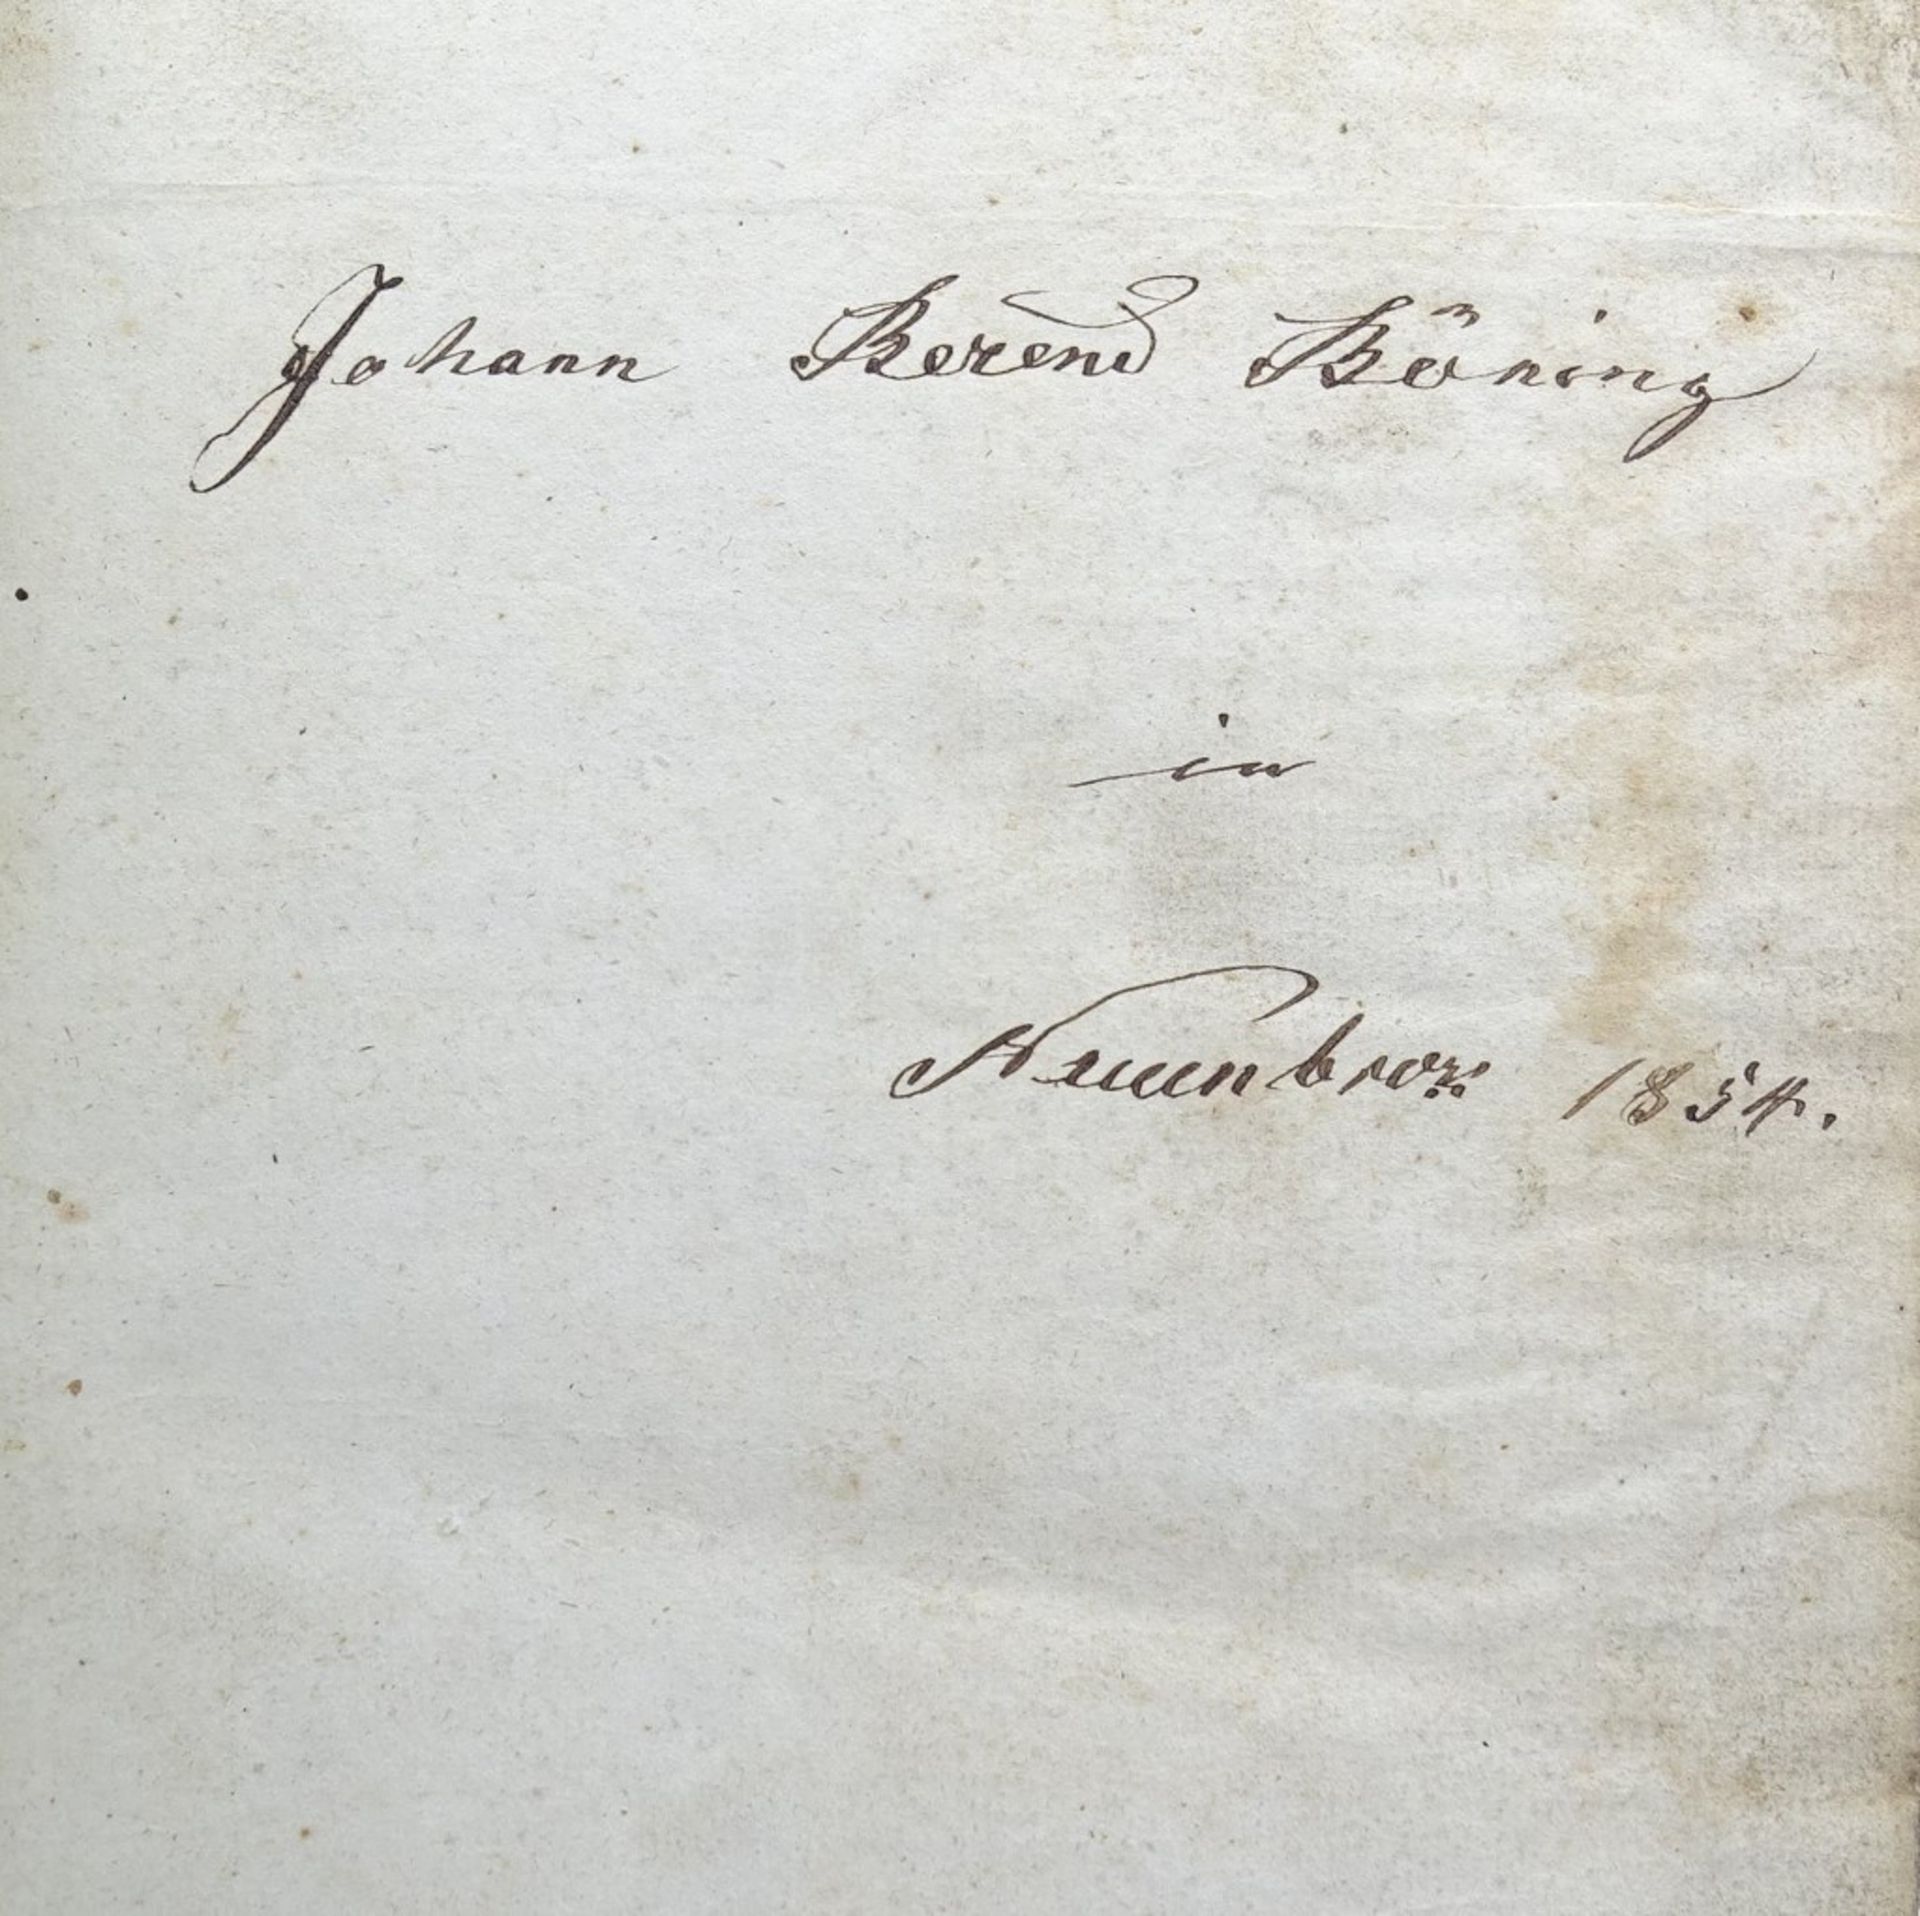 Johann Berend Böning
in
Neuenbrok 1854.